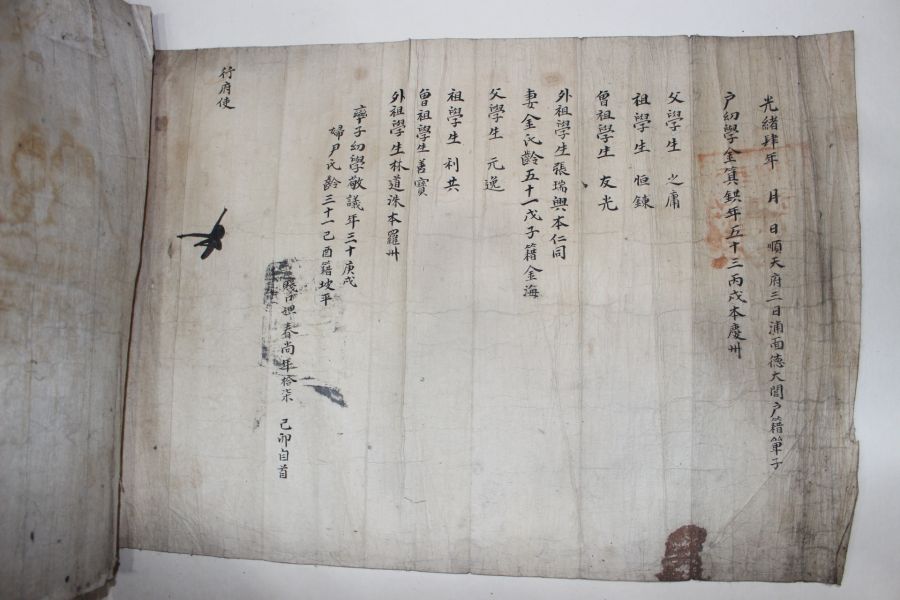 光緖肆年 月 日順天府三日浦面德大閭戶籍單子
戶幼學金箕鉷年五十三丙戌本慶州
父學生 之庸
祖學生 恒鍊
曾祖學生 友光
外祖學生張瑞興本仁同
妻金氏齡五十一戊子籍金海
父學生 元逸
祖學生 利共
曾祖學生 善寶
外祖學生林道洙本羅州
率子幼學敬議年三十庚戌
婦尹氏齡三十一己酉籍坡平
賤口婢春尚年拾柒 己卯自首
行府使